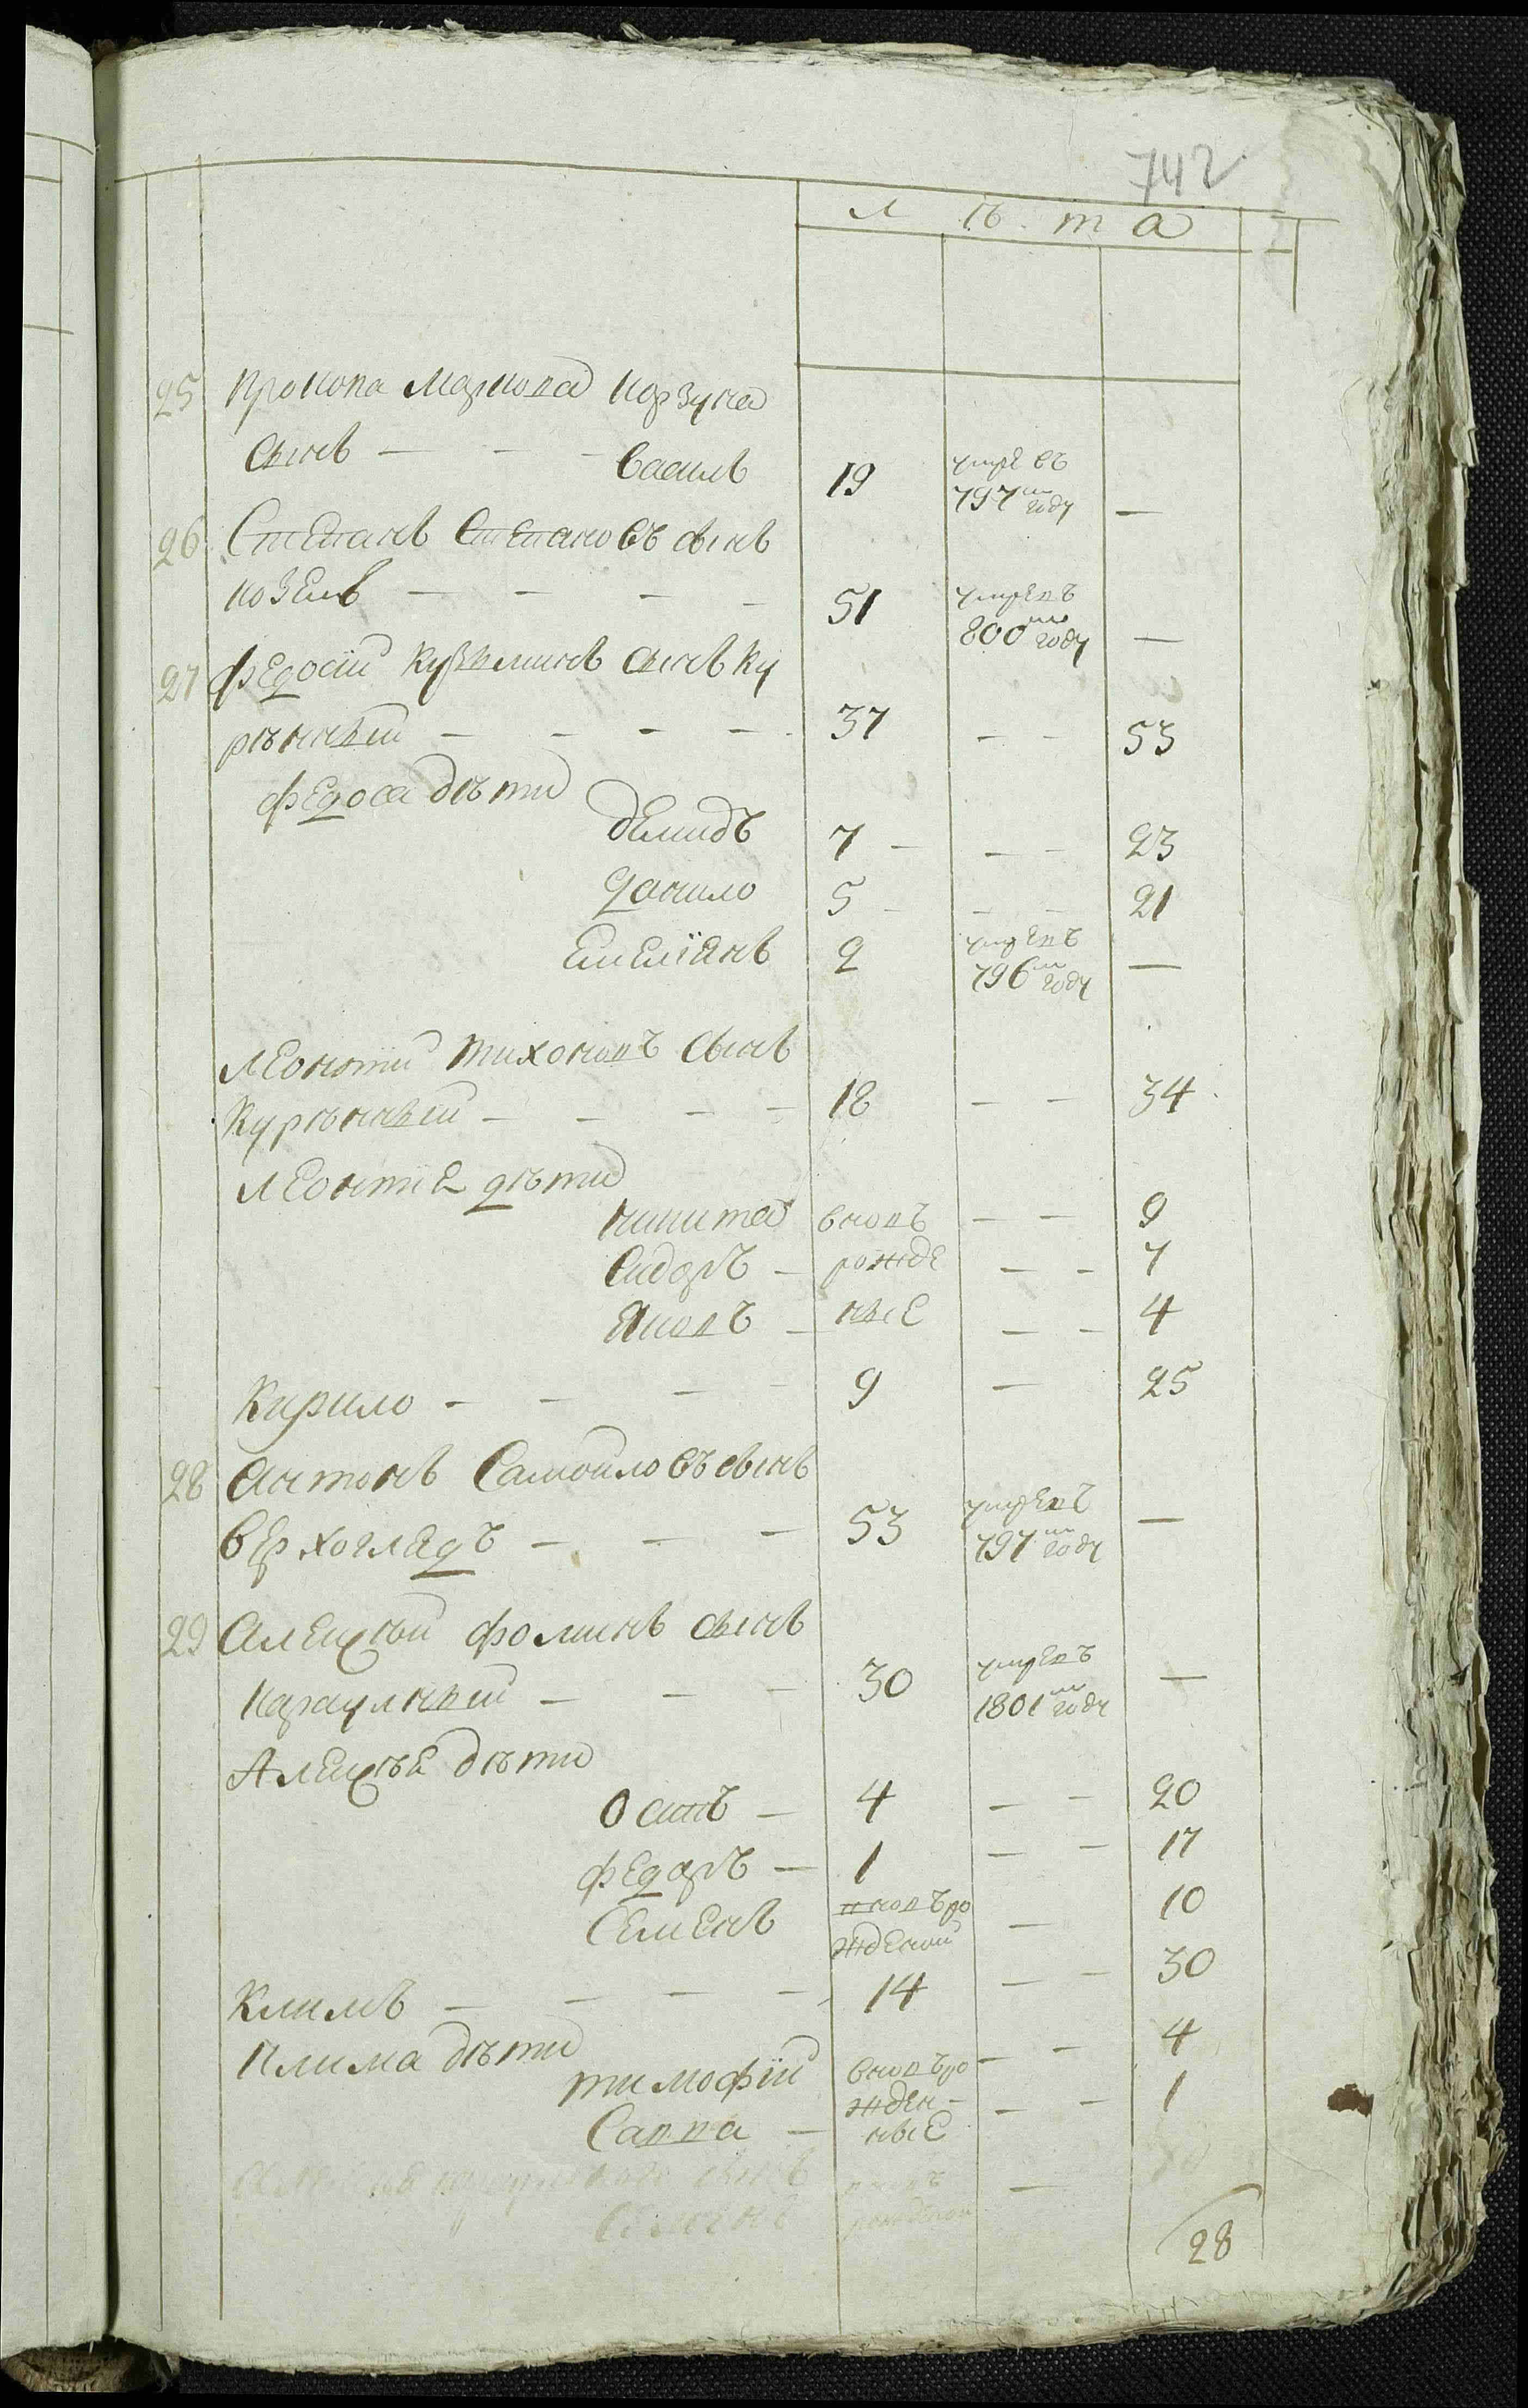 742
лѣта
25 Прокопа Маркова Корзуна
сынъ — — — Василь 19 умре въ
797м году —
26 Степанъ Степановъ сынъ
Козелъ — — — — 51 умревъ
800мъ году —
27 Федосій Кузьминъ сынъ Ку
рѣнный — — — — 37 — — 53
Федоса дѣти
Демидъ 7 — — — 23
Данило 5 — — — 21
Емеліянъ 2 умревъ
796м году —
Леонтий Тихоновъ сынъ
Курѣнный — — — — 18 — — 34
Леонтіе дѣти
Никита вновъ — — 9
Сидоръ — рожде — — 7
Яковъ — ные — — 4
Кирило — — — — 9 — 25
28 Антонъ Самойловъ сынъ
Верхоглядъ — — — 53 умревъ
797м году —
29 Алексѣй Фоминъ сынъ
Караулный — — — 30 умревъ
1801м году —
Алексѣе дѣти
Осипъ — 4 — — 20
Федоръ — 1 — — 17
Семенъ вновъ ро
жденой — 10
Климъ — — — — 14 — — 30
Клима дѣти
Тимофій вновъ ро — — 4
жден-
Савва — ные — — 1
сынъ вновъ —
Семенъ рожденой
28